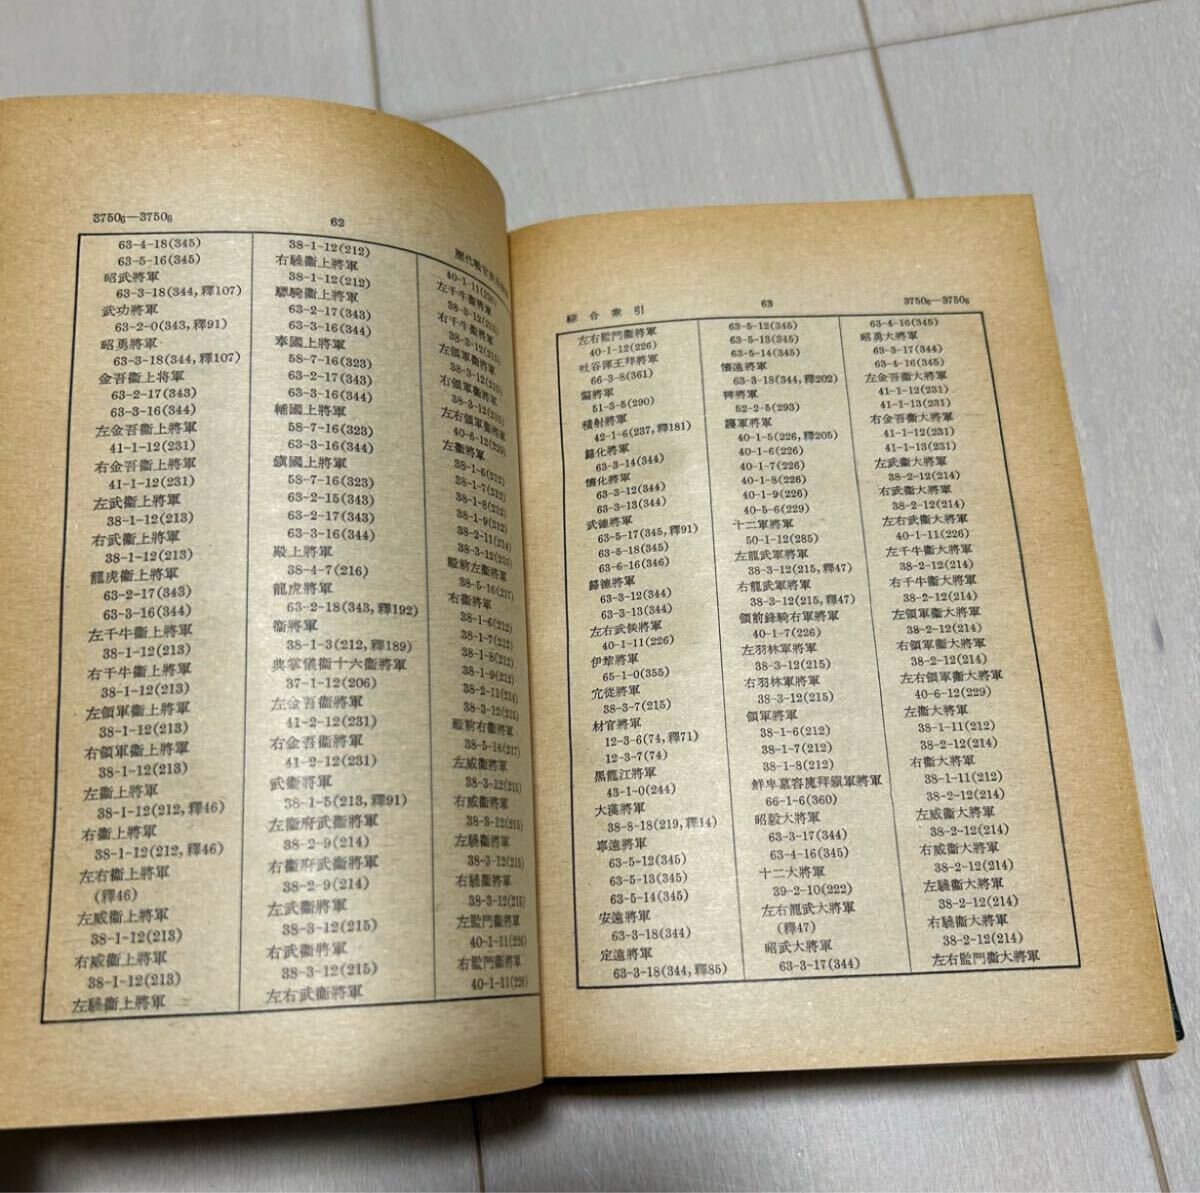 3750₆—3750₆
62
63-4-18(345)
63-5-16(345)
昭武將軍
63-3-18(344,釋107)
武功將軍
63-2-0(343,釋91)
昭勇將軍
63-3-18(344,釋107)
金吾衞上將軍
63-2-17(343)
63-3-16(344)
左金吾衞上將軍
41-1-12(231)
右金吾衞上將軍
41-1-12(231)
左武衞上將軍
38-1-12(213)
右武衞上將軍
38-1-12(213)
龍虎衞上將軍
63-2-17(343)
63-3-16(344)
左千牛衞上將軍
38-1-12(213)
右千牛衞上將軍
38-1-12(213)
左領軍衞上將軍
38-1-12(213)
右領軍衞上將軍
38-1-12(213)
左衞上將軍
38-1-12(212,釋46)
右衞上將軍
38-1-12(212,釋46)
左右衞上將軍
(釋46)
左威衞上將軍
38-1-12(213)
右威衞上將軍
38-1-12(213)
左驍衞上將軍
38-1-12(212)
右驍衞上將軍
38-1-12(212)
驃騎衞上將軍
63-2-17(343)
63-3-16(344)
奉國上將軍
58-7-16(323)
63-2-17(343)
63-3-16(344)
輔國上將軍
58-7-16(323)
63-3-16(344)
鎭國上將軍
58-7-16(323)
63-2-15(343)
63-2-17(343)
63-3-16(344)
殿上將軍
38-4-7(216)
龍虎將軍
63-2-18(343,釋192)
衞將軍
38-1-3(212,釋189)
典掌儀衞十六衞將軍
37-1-12(206)
左金吾衞將軍
41-2-12(231)
右金吾衞將軍
41-2-12(231)
武衞將軍
38-1-5(213,釋91)
左衞府武衞將軍
38-2-9(214)
右衞府武衞將軍
38-2-9(214)
左武衞將軍
38-3-12(215)
右武衞將軍
38-3-12(215)
左右武衞將軍
40-1-11(226)
左千牛衞將軍
38-3-12(215)
右千牛衞將軍
38-3-12(215)
左領軍衞將軍
38-3-12(215)
右領軍衞將軍
38-3-12(215)
左右領軍衞將軍
40-6-12(229)
左衞將軍
38-1-6(212)
38-1-7(212)
38-1-8(212)
38-1-9(212)
38-2-11(214)
38-3-12(215)
殿前左衞將軍
38-5-16(217)
右衞將軍
38-1-6(212)
38-1-7(212)
38-1-8(212)
38-1-9(212)
38-2-11(214)
38-3-12(215)
殿前右衞將軍
38-5-16(217)
左威衞將軍
38-3-12(215)
右威衞將軍
38-3-12(215)
左驍衞將軍
38-3-12(215)
右驍衞將軍
38-3-12(215)
左監門衞將軍
40-1-11(226)
右監門衞將軍
40-1-11(226)
綜合索引
63
3750₆—3750₆
左右監門衞將軍
40-1-12(226)
吐谷渾王拜將軍
66-3-8(361)
偏將軍
51-3-5(290)
積射將軍
42-1-6(237,釋181)
歸化將軍
63-3-14(344)
懷化將軍
63-3-12(344)
63-3-13(344)
武德將軍
63-5-17(345,釋91)
63-5-18(345)
63-6-16(346)
歸德將軍
63-3-12(344)
63-3-13(344)
左右武候將軍
40-1-11(226)
伊犂將軍
65-1-0(355)
宂從將軍
38-3-7(215)
材官將軍
12-3-6(74,釋71)
12-3-7(74)
黑龍江將軍
43-1-0(244)
大漢將軍
38-8-18(219,釋14)
寧遠將軍
63-5-12(345)
63-5-13(345)
63-5-14(345)
安遠將軍
63-3-18(344)
定遠將軍
63-3-18(344,釋85)
63-5-12(345)
63-5-13(345)
63-5-14(345)
懷遠將軍
63-3-18(344,釋202)
裨將軍
52-2-5(293)
護軍將軍
40-1-5(226,釋205)
40-1-6(226)
40-1-7(226)
40-1-8(226)
40-1-9(226)
40-5-6(229)
十二軍將軍
50-1-12(285)
左龍武軍將軍
38-3-12(215,釋47)
右龍武軍將軍
38-3-12(215,釋47)
領前鋒騎右軍將軍
40-1-7(226)
左羽林軍將軍
38-3-12(215)
右羽林軍將軍
38-3-12(215)
領軍將軍
38-1-6(212)
38-1-7(212)
38-1-8(212)
鮮卑慕容廆拜鎭軍將軍
66-1-6(360)
昭毅大將軍
63-3-17(344)
63-4-16(345)
十二大將軍
39-2-10(222)
左右龍武大將軍
(釋47)
昭武大將軍
63-3-17(344)
63-4-16(345)
昭勇大將軍
63-3-17(344)
63-4-16(345)
左金吾衞大將軍
41-1-12(231)
41-1-13(231)
右金吾衞大將軍
41-1-12(231)
41-1-13(231)
左武衞大將軍
38-2-12(214)
右武衞大將軍
38-2-12(214)
左右武衞大將軍
40-1-11(226)
左千牛衞大將軍
38-2-12(214)
右千牛衞大將軍
38-2-12(214)
左領軍衞大將軍
38-2-12(214)
右領軍衞大將軍
38-2-12(214)
左右領軍衞大將軍
40-6-12(229)
左衞大將軍
38-1-11(212)
38-2-12(214)
右衞大將軍
38-1-11(212)
38-2-12(214)
左威衞大將軍
38-2-12(214)
右威衞大將軍
38-2-12(214)
左驍衞大將軍
38-2-12(214)
右驍衞大將軍
38-2-12(214)
左右監門衞大將軍